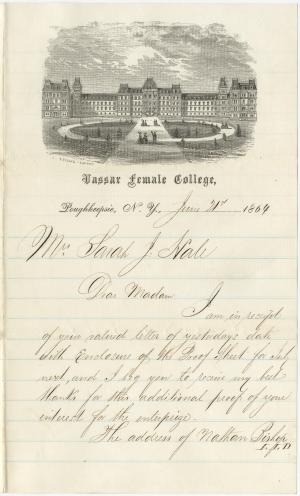 Vassar Female College,
Poughkeepsie, N. Y., June 21st 1864
Mrs Sarah J. Hale
Dear Madam
I am in receipt
of your valued letter of yesterday's date
with enclosure of the Proof Sheet for July
next, and I beg you to receive my best
thanks for this additional proof of your
interest for the enterprize.
The address of Nathan Bishop
L.L.D